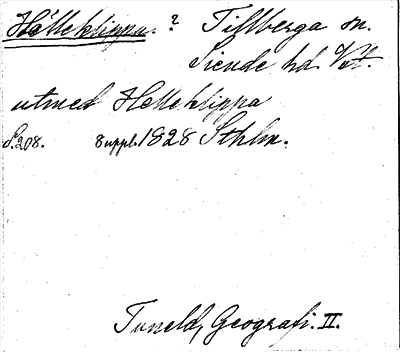 Hälleklippa ? Tillberga sn.
Siende hd. Vstm.
utmed Helleklippa
S. 208. Suppl. 1828 Sthlm.
Tuneld, Geografi. II.